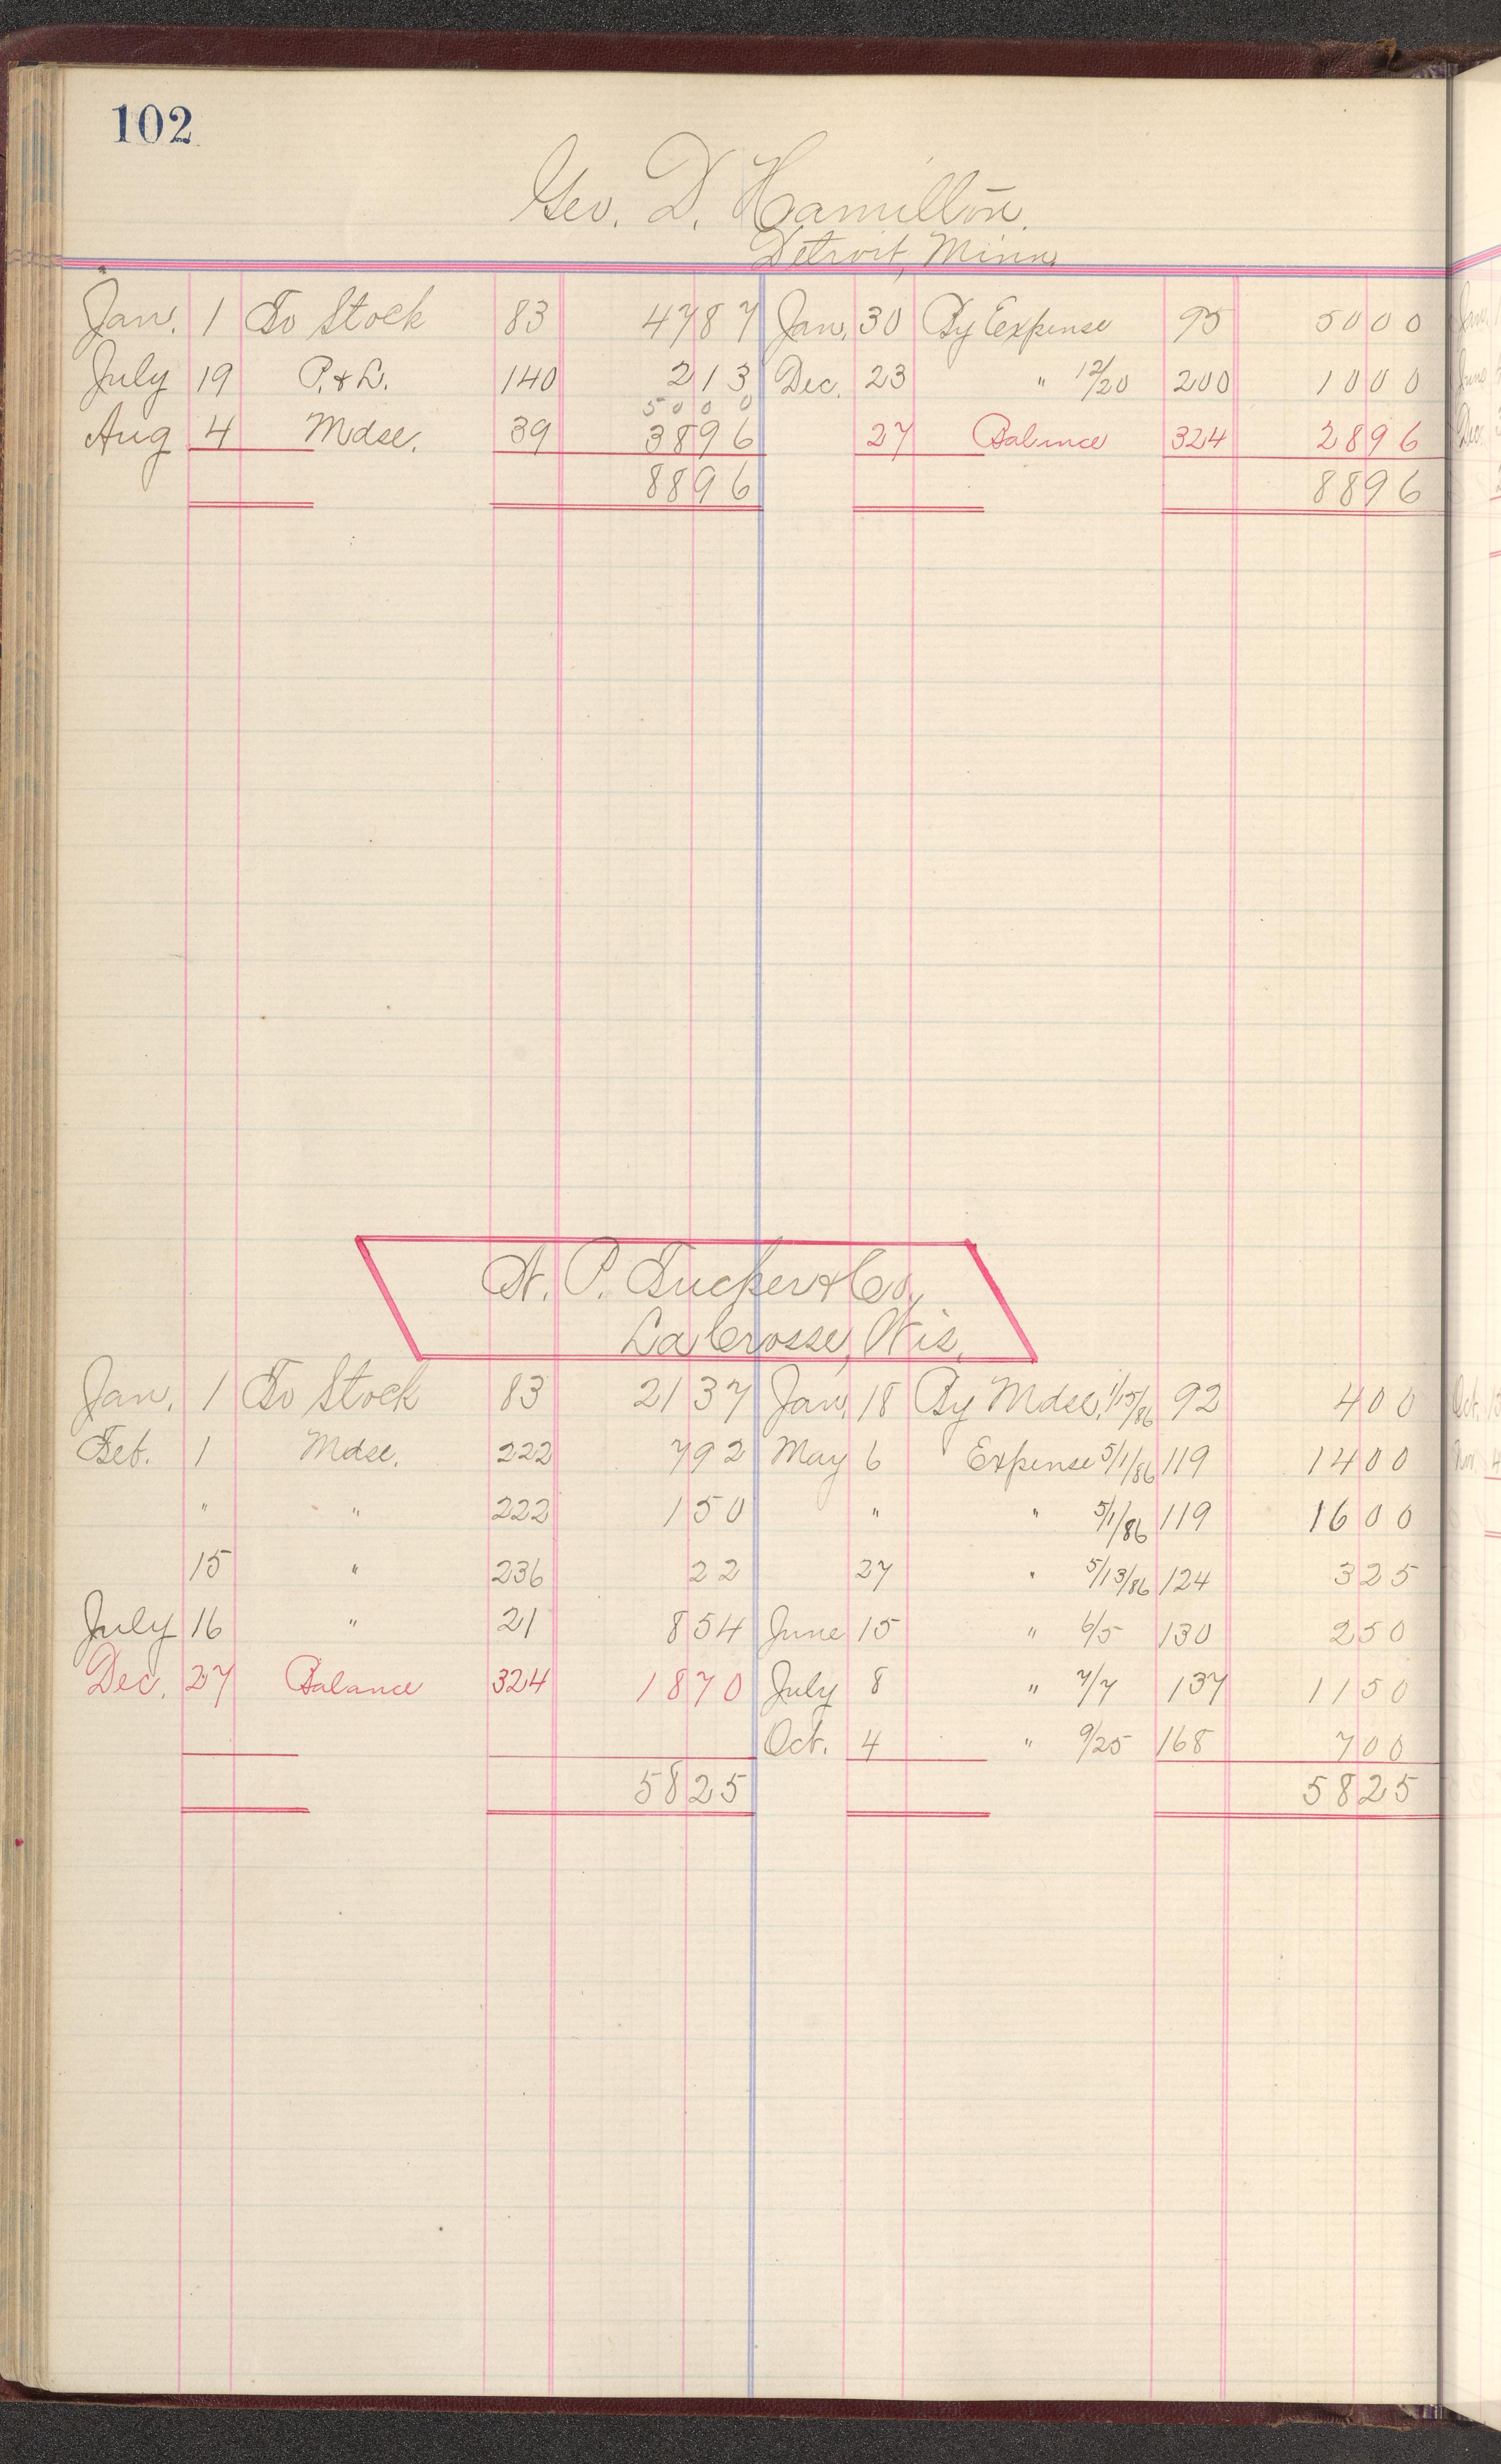 102
Geo. D. Hamilton.
Detroit, Minn.
Jan. 1 To Stock 83 4787 Jan. 30 By Expense 95 5000
July 19 P. & L. 140 213 Dec. 23 " 12/20 200 1000
5000
Aug 4 Mdse. 39 3896 27 Balance 324 2896
8896 8896
A. P. Tucker & Co.,
La Crosse, Wis.
Jan. 1 To Stock 83 2137 Jan. 18 By Mdse. 1/15/86 92 400
Feb. 1 Mdse. 222 792 May 6 Expense 5/1/86 119 1400
" " 222 150 " " 5/1/86 119 1600
15 " 236 22 27 " 5/13/86 124 325
July 16 " 21 854 June 15 " 6/5 130 250
Dec. 27 Balance 324 1870 July 8 " 7/7 137 1150
Oct. 4 " 9/25 168 700
5825 5825